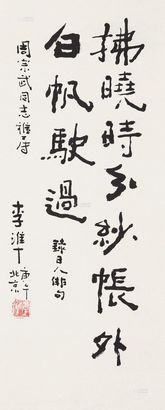 拂曉時分紗帳外
白帆駛過
錄日人俳句
周宗武同志雅屬
李準
庚午
北京